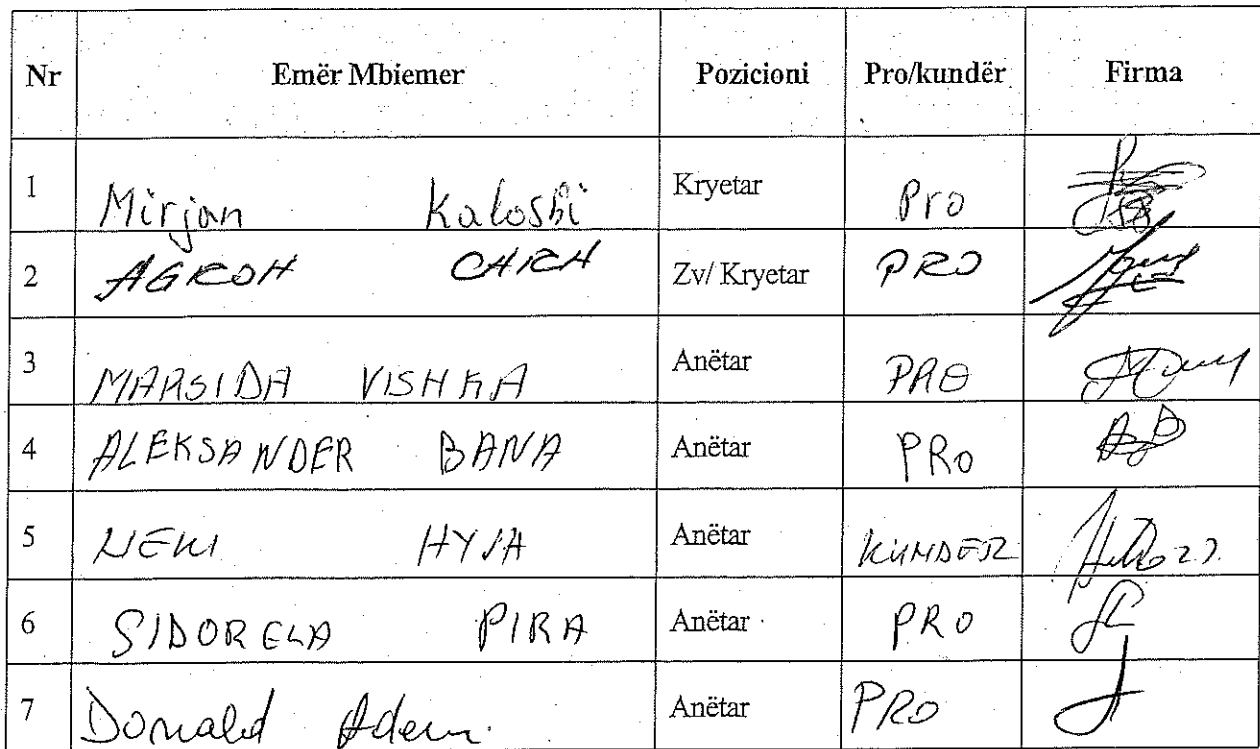 Nr Emër Mbiemer Pozicioni Pro/kundër Firma
1 Mirjan Kaloshi Kryetar Pro
2 AGRON Zv/ Kryetar PRO
3 MARSIDA VISHKA Anëtar PRO
4 ALEKSANDER BANA Anëtar PRO
5 HYSA Anëtar KUNDER
6 SIDORELA PIRA Anëtar PRO
7 Donald Ademi Anëtar PRO